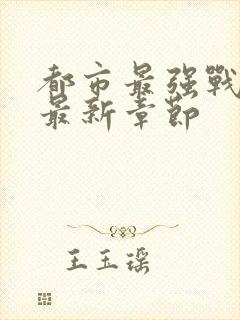 都市最强戰
最新章節
王玉瑶